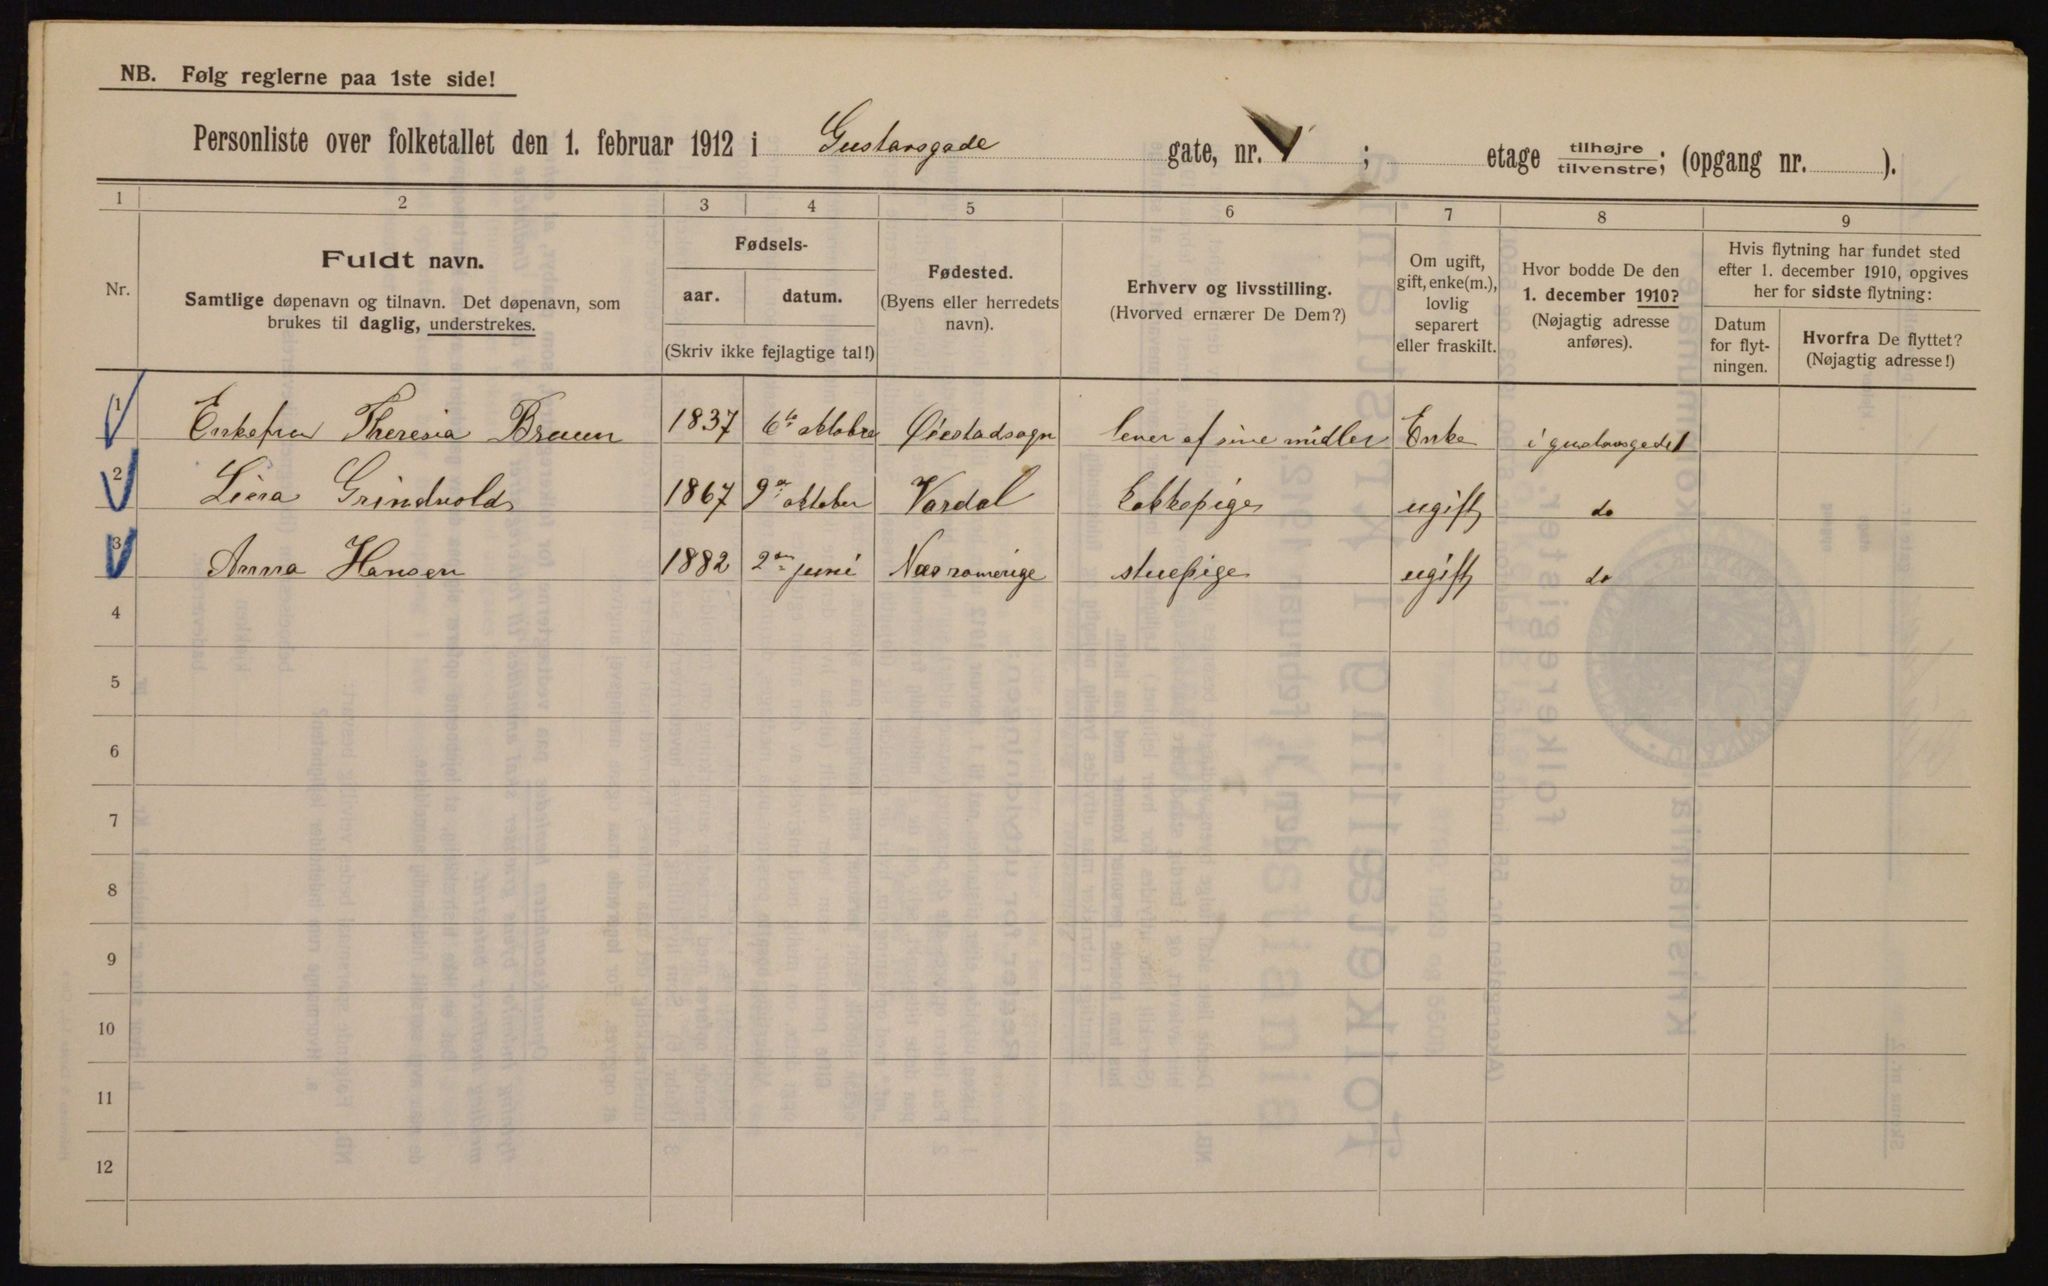 NB. Følg reglerne paa 1ste side!
Personliste over folketallet den 1. februar 1912 i Gustavsgade gate, nr. 1 ; etage tilhøjre/tilvenstre; (opgang nr. ).
1 2 3 4 5 6 7 8 9
Nr.
Fuldt navn.
Samtlige døpenavn og tilnavn. Det døpenavn, som
brukes til daglig, understrekes.
Fødsels-
aar. datum.
(Skriv ikke fejlagtige tal!)
Fødested.
(Byens eller herredets
navn).
Erhverv og livsstilling.
(Hvorved ernærer De Dem?)
Om ugift,
gift, enke(m.),
lovlig
separert
eller fraskilt.
Hvor bodde De den
1. december 1910?
(Nøjagtig adresse
anføres).
Hvis flytning har fundet sted
efter 1. december 1910, opgives
her for sidste flytning:
Datum
for flyt-
ningen.
Hvorfra De flyttet?
(Nøjagtig adresse!)
1 Enkefru Theresia Bruun 1837 6te oktober Øiestadsogn lever af sine midler Enke i gustavsgade 1
2 Lina Grindvold 1867 9de oktober Vardal kokkepige ugift do
3 Anna Hansen 1882 2den juni Næs romerige stuepige ugift do
4
5
6
7
8
9
10
11
12